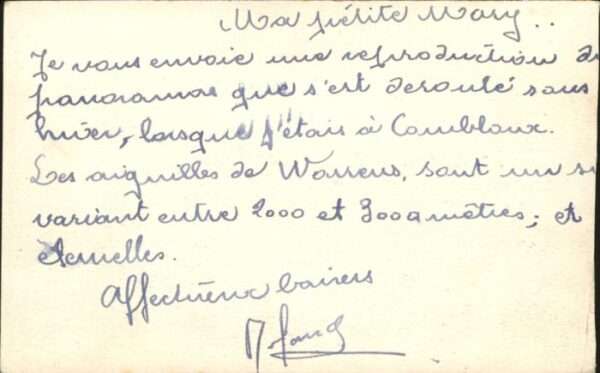 Ma petite Mary..
Je vous envoie une reproduction d
panoramas que s'est deroulé sous
hiver, lorsque j'étais à Combloux.
Les aiguilles de Warrens, sont un s
variant entre 2000 et 3000 mètres; et
éternelles.
Affectueux baisers